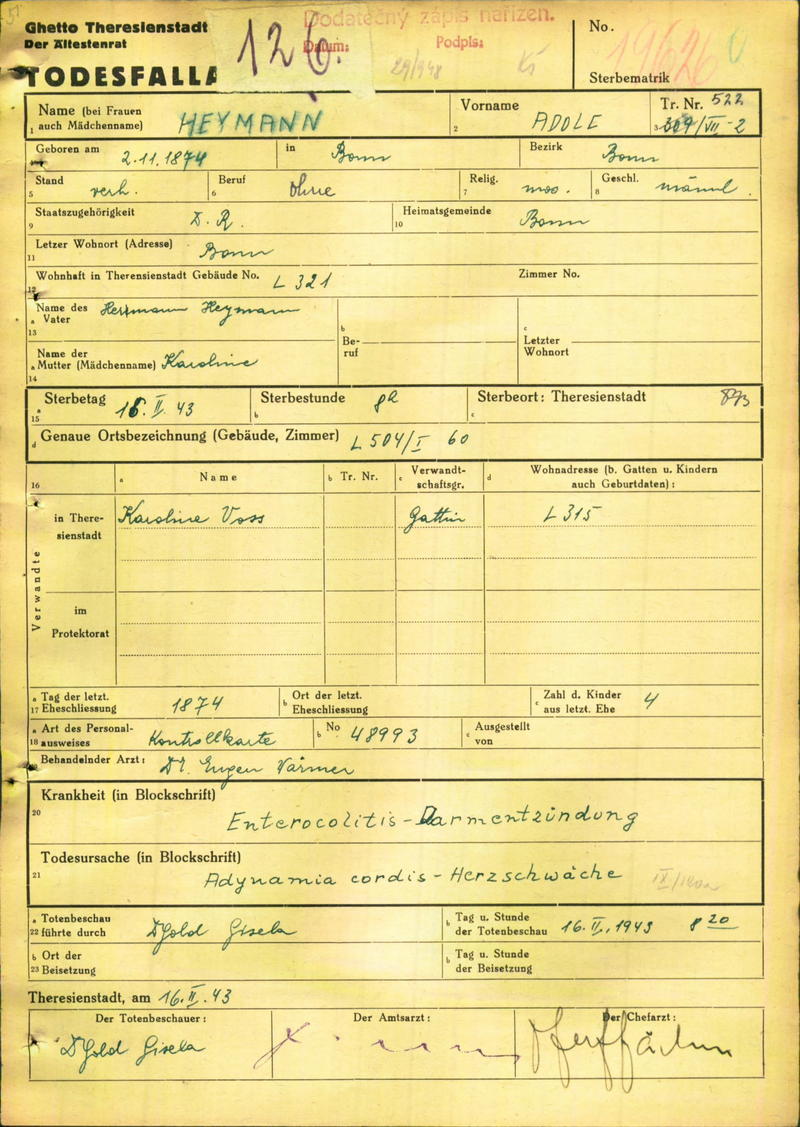 Ghetto Theresienstadt
Der Ältestenrat
TODESFALLA
126.
Dodatečný zápis nařízen.
Datum: Podpis:
29/1948
No.
19626
Sterbematrik
Name (bei Frauen
1 auch Mädchenname)
HEYMANN
Vorname
2
ADOLF
Tr. Nr. 522
3 309/VII-2
Geboren am
2.11.1874
in
Bonn
Bezirk
Bonn
Stand
5
verh.
Beruf
6
Ohne
Relig.
7
mos.
Geschl.
8
männl.
Staatszugehörigkeit
9
D. R.
Heimatsgemeinde
10
Bonn
Letzer Wohnort (Adresse)
11
Bonn
Wohnhaft in Therensienstadt Gebäude No. L 321
Zimmer No.
12
Name des
a Vater
13
Hermann Heymann
b
Be-
ruf
c
Letzter
Wohnort
Name der
a Mutter (Mädchenname) Karoline
14
Sterbetag
a
15
16. II. 43
Sterbestunde
b
8h
Sterbeort: Theresienstadt
c
d Genaue Ortsbezeichnung (Gebäude, Zimmer) L 504/I 60
16
a Name
b Tr. Nr.
c Verwandt-
schaftsgr.
d Wohnadresse (b. Gatten u. Kindern
auch Geburtdaten) :
Verwandte
in There-
sienstadt
Karoline Voss
Gattin
L 315
im
Protektorat
a Tag der letzt.
17 Eheschliessung
1874
b Ort der letzt.
Eheschliessung
c Zahl d. Kinder
aus letzt. Ehe
4
a Art des Personal-
18 ausweises
Kontrollkarte
b No 48993
c Ausgestellt
von
Behandelnder Arzt :
Dr. Eugen Varmer
Krankheit (in Blockschrift)
20
Enterocolitis-Darmentzündung
Todesursache (in Blockschrift)
21
Adynamia cordis - Herzschwäche
a Totenbeschau
22 führte durch
Gold Gisela
b Tag u. Stunde
der Totenbeschau
16. II. 1943 8 20
b Ort der
23 Beisetzung
b Tag u. Stunde
der Beisetzung
Theresienstadt, am 16. II. 43
Der Totenbeschauer :
Gold Gisela
Der Amtsarzt :
Der Chefarzt :